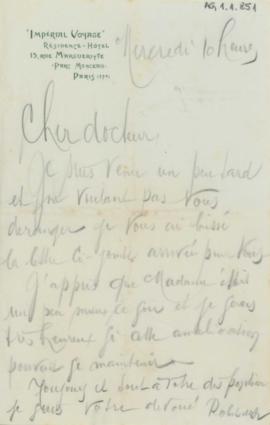 AG.1.1.851
"IMPERIAL VOYAGE"
RÉSIDENCE-HÔTEL
13, RUE MARGUERITTE
PARC MONCEAU
PARIS
Mercredi 10 heures
Cher docteur,
Je suis venu un peu tard
et ne voulant pas vous
deranger je vous ai laissé
la lettre ci-jointe arrivée pour vous
J'appris que Madame était
un peu mieux ce soir et je serais
très heureux si cette amelioration
pouvait se maintenir
Toujours et
je suis votre devoué